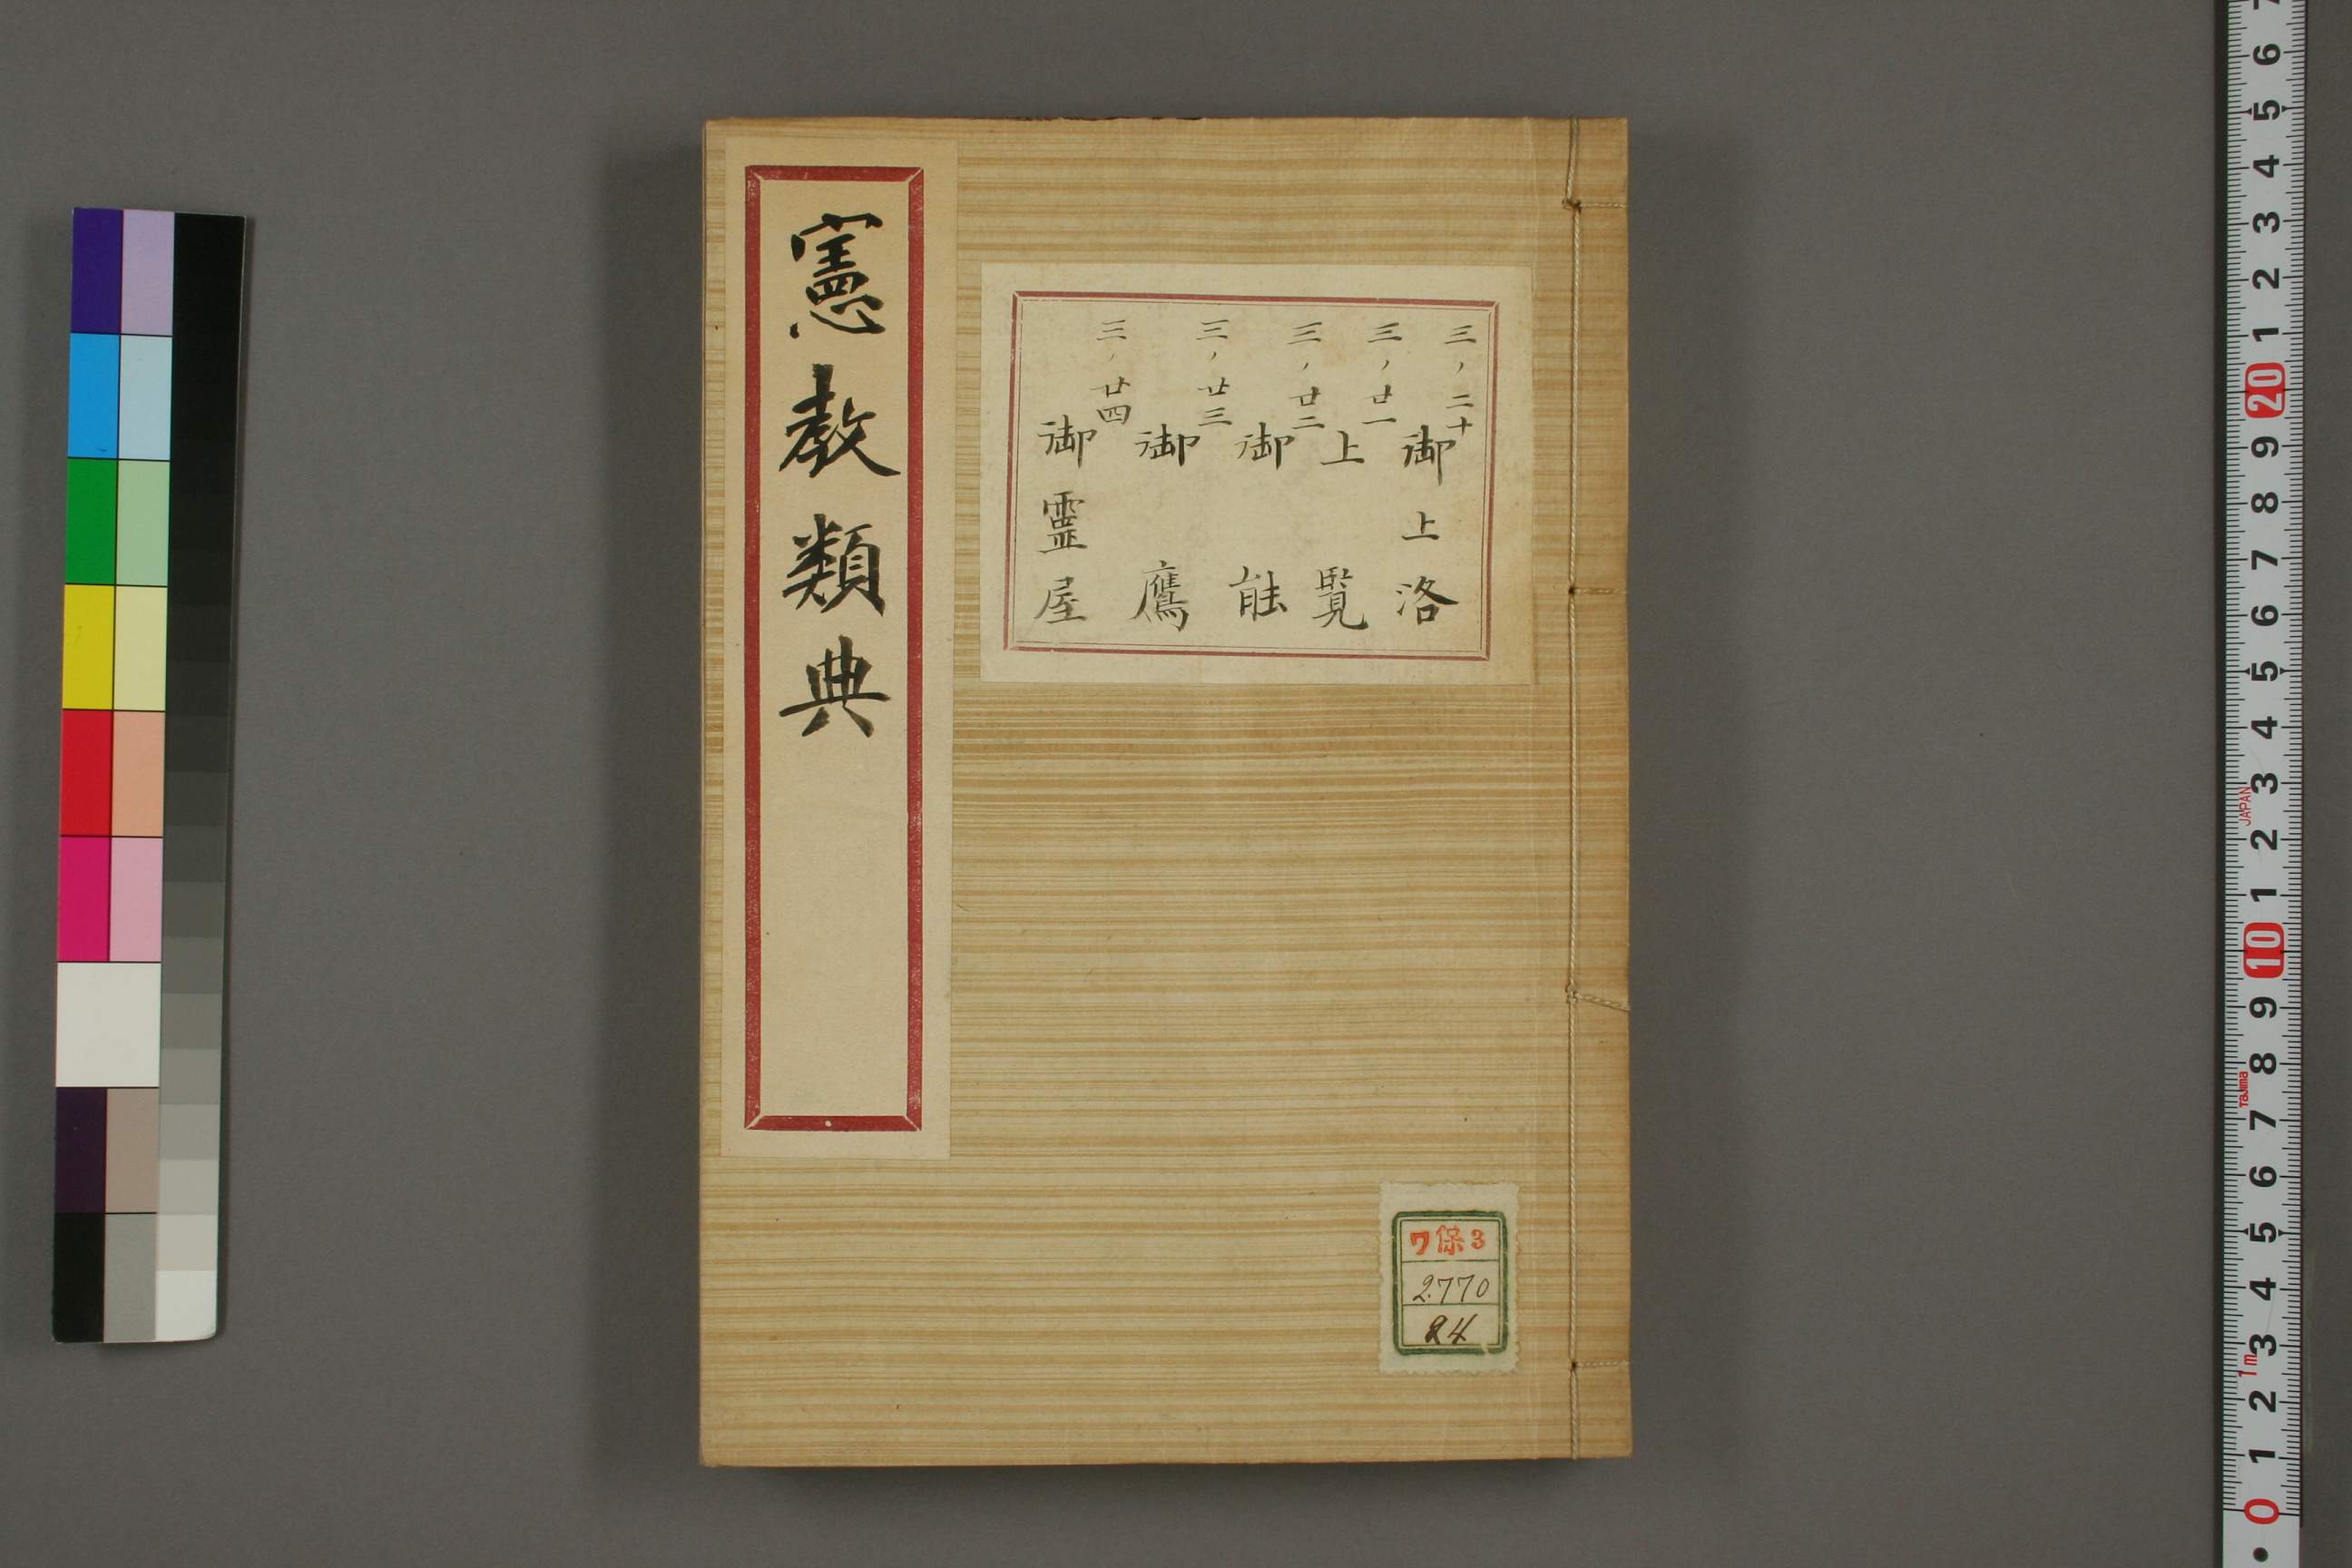 憲教類典
三、二十
御上洛
三、廿一
上覧
三、廿二
御能
三、廿三
御鷹
三、廿四
御霊屋
ワ保3
2770
84
7
6
5
4
3
2
1
20
9
8
7
6
5
4
3
2
1
10
9
8
7
6
5
4
3
2
1
0
JAPAN
Tajima
1m